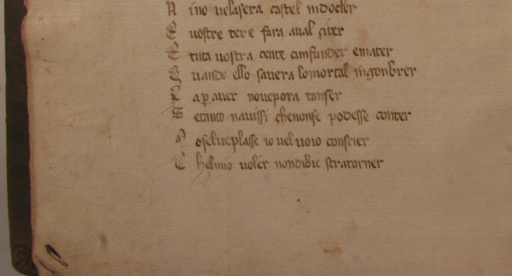 A ino uelasera castel indocler
E uostre tere fara aual çiter
E tuta uostra cente cunfunder emater
Q uando ello sauera lomortal ingonbrer
 aꝑ auer nouepora tanser
S etanto nauissi chenonse podesse conter
M oselueplasse io uel uoio conseier
E helmio uoler nondibie stratorner